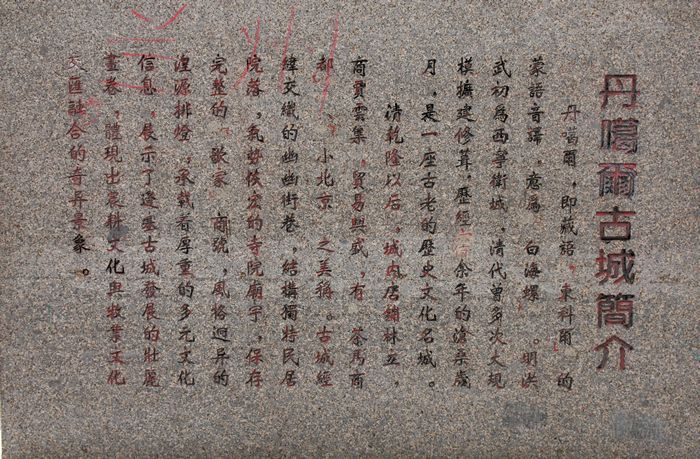 丹噶爾古城簡介
丹噶爾,即藏語"東科爾"的
蒙語音譯,意爲"白海螺"。明洪
武初爲西寧衛城,清代曾多次大規
模擴建修葺,歷經六百余年的滄桑歲
月,是一座古老的歷史文化名城。
清乾隆以后,城内店鋪林立,
商賈雲集,貿易興盛,有"茶馬商
都"、"小北京"之美稱。古城經
緯交織的幽幽街巷,結構獨特民居
院落,氣勢恢宏的寺院廟宇,保存
完整的"歇家"商號,風格迥异的
湟源排燈,承載者厚重的多元文化
信息,展示了邊塞古城發展的壯麗
畫卷,體現出農耕文化與牧業文化
交匯融合的奇异景象。